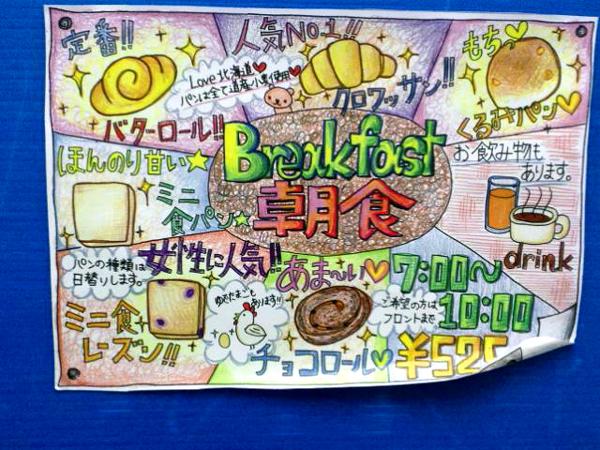 定番!!
バターロール!!
人気No.1!!
Love北海道
パンは全て道産小麦使用
クロワッサン!!
もちっ
くるみパン
Breakfast
朝食
ほんのり甘い
ミニ
食パン
お飲み物も
あります。
drink
パンの種類は
日替りします。
女性に人気!!
ミニ食
レーズン!!
ゆでたまごも
あります!!
あま〜い
チョコロール
7:00〜
10:00
ご希望の方は
フロントまで
¥525